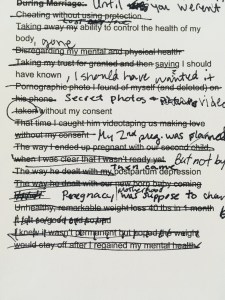 During Marriage: Until you weren't
Cheating without using protection
Taking away my ability to control the health of my
body, gone
Disregarding my mental and physical health
Taking my trust for granted and then saying I should
have known, I should have wanted it
Pornographic photo I found of myself (and deleted) on
his phone. Secret photos + video
taken without my consent
That time I caught him videotaping us making love
without my consent My 2nd preg. was planned
The way I ended up pregnant with our second child
when I was clear that I wasn't ready yet But not by
The way he dealt with my postpartum depression
then came
The way he dealt with our new born baby coming
motherhood
Pregnancy, was suppose to chan
Unhealthy, remarkable weight loss 40 lbs in 1 month
I knew it wasn't permanent but hoped weight
would stay off after I regained my mental health